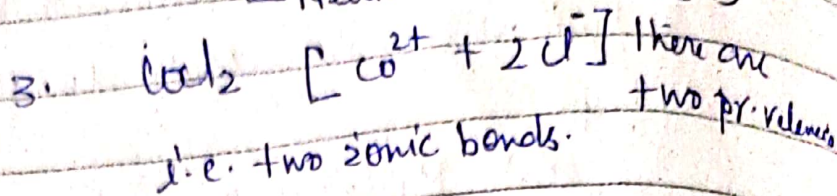 3. CoCl₂ [Co²⁺ + 2Cl⁻] There are
two pr. valencies
i.e. two ionic bonds.